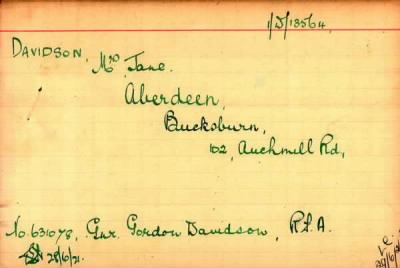 1/D/13564.
DAVIDSON,
Mrs Jane.
Aberdeen,
Bucksburn,
102, Auchmill Rd,
No. 631078, Gnr. Gordon Davidson, R.F.A.
28/6/21.